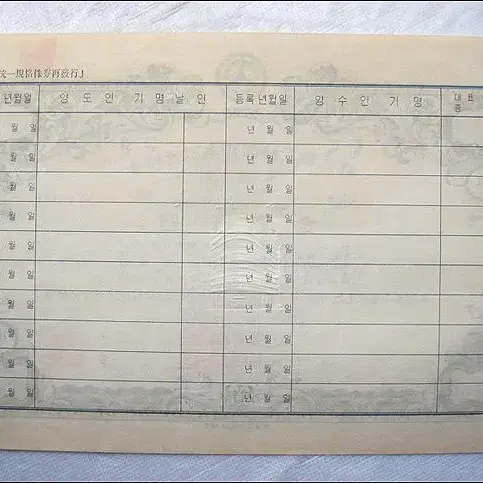 統一規格株券再發行」
년월일 양도인기명날인 등록년월일 양수인기명 대표
월 일 년 월 일
월 일 년 월 일
월 일 년 월 일
월 일 년 월 일
월 일 년 월 일
월 일 년 월 일
월 일 년 월 일
월 일 년 월 일
월 일 년 월 일
월 일 년 월 일